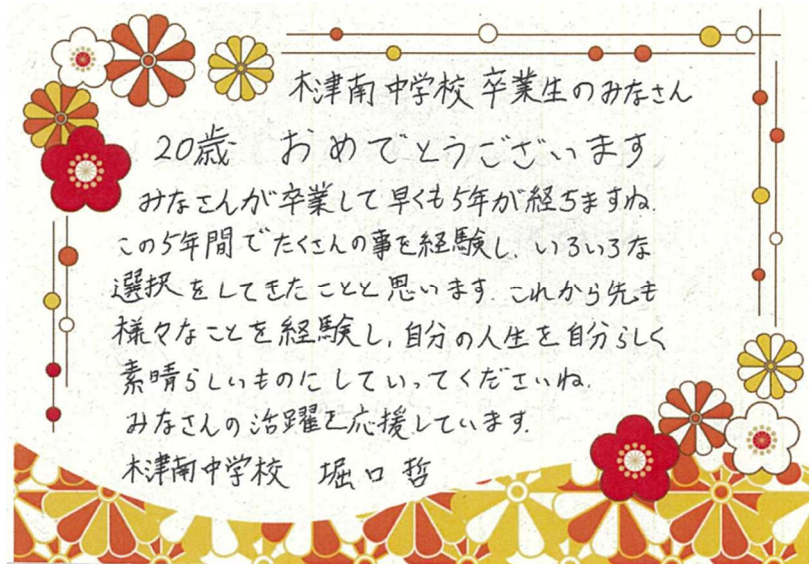 木津南中学校 卒業生のみなさん
20歳 おめでとうございます
みなさんが卒業して早くも5年が経ちますね.
この5年間でたくさんの事を経験し、いろいろな
選択をしてきたことと思います. これから先も
様々なことを経験し、自分の人生を自分らしく
素晴らしいものにしていってくださいね.
みなさんの活躍を応援しています.
木津南中学校 堀口 哲